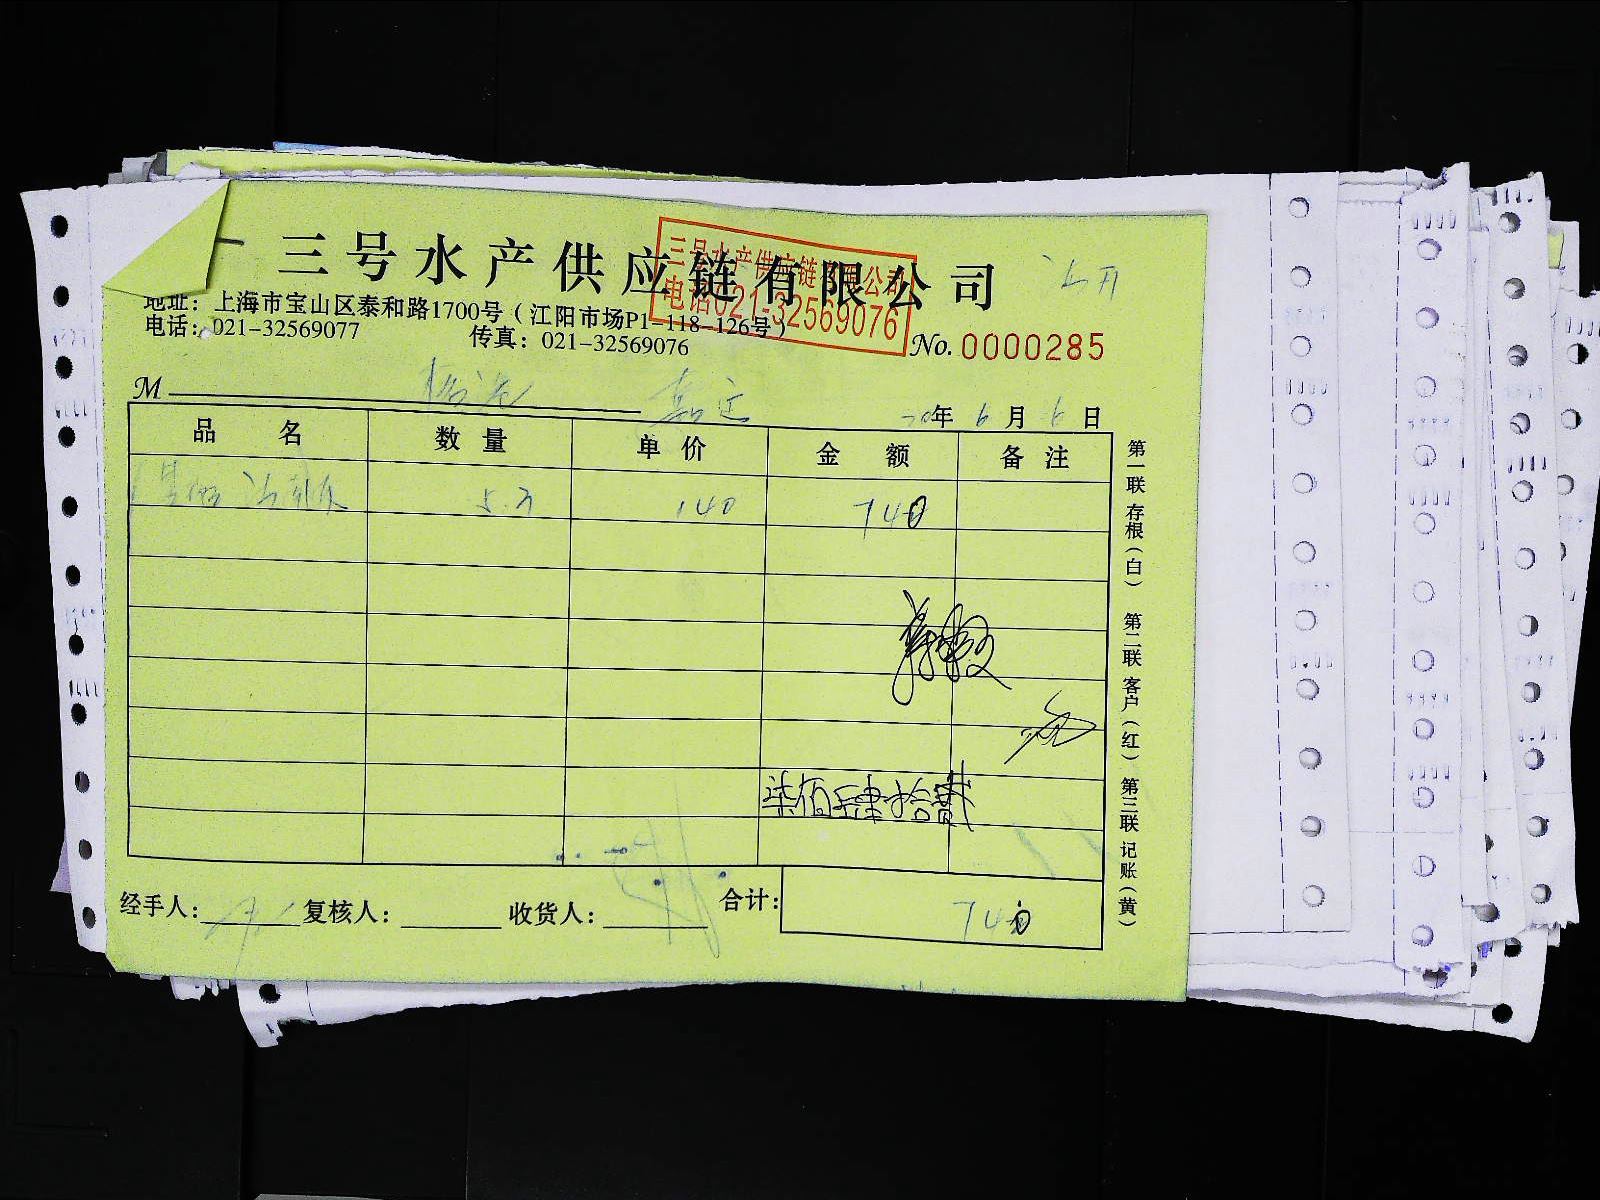 三号水产供应链有限公司
三号水产供应链有限公司
电话021-32569076
地址：上海市宝山区泰和路1700号（江阳市场P1-118-126号）
电话：021-32569077 传真：021-32569076
No. 0000285
M
20年6月6日
品名 数量 单价 金额 备注
5.3 140 740
柒佰肆拾贰
经手人： 复核人： 收货人： 合计： 740
第一联 存根（白） 第二联 客户（红） 第三联 记账（黄）